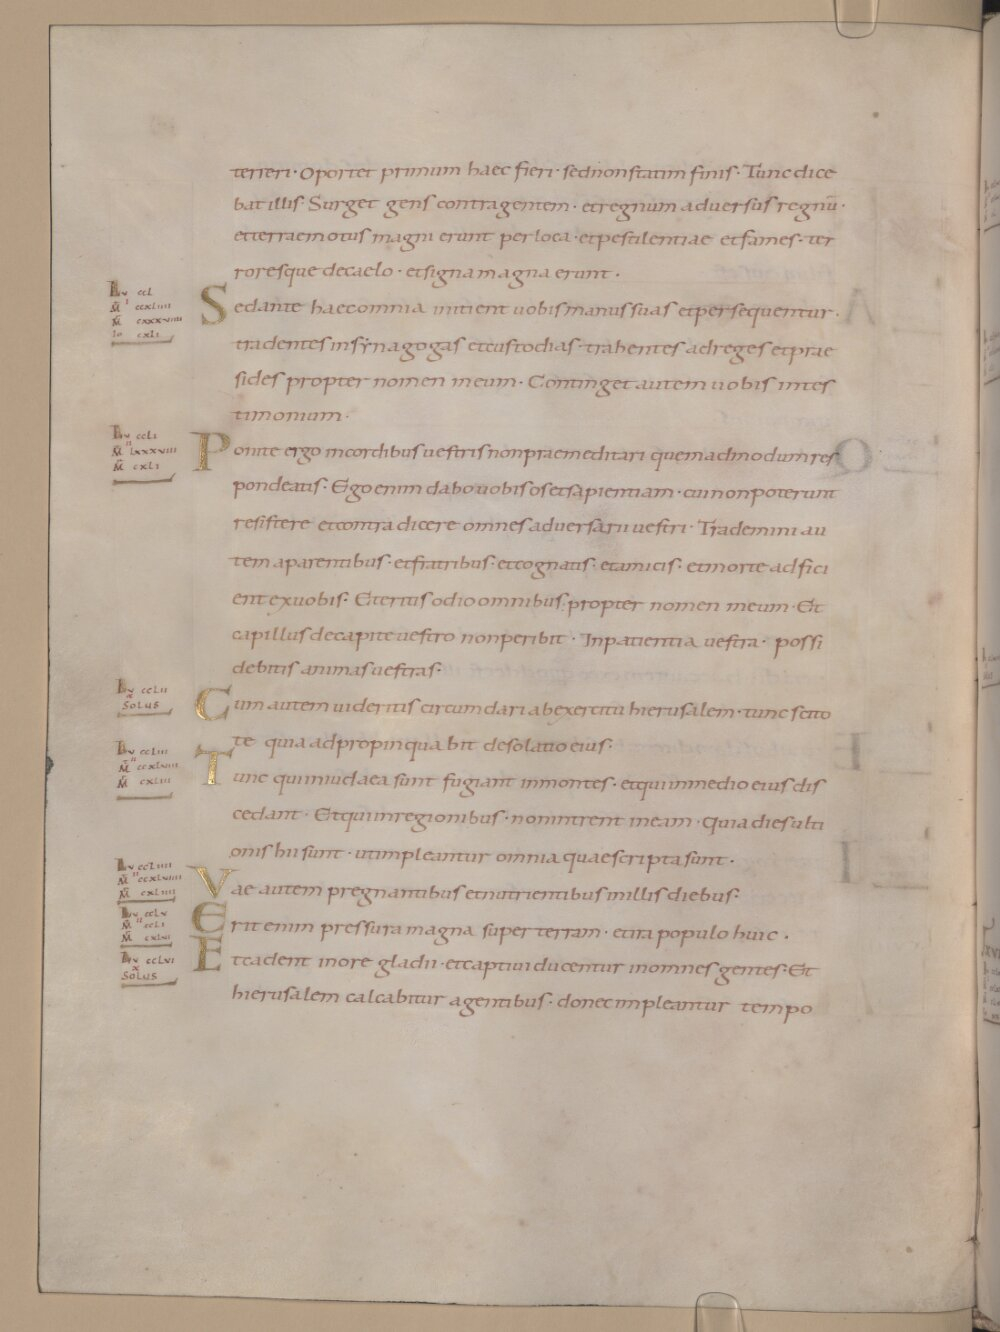 terreri · Oportet primum haec fieri · sed non statim finis · Tunc dice
bat illis · Surget gens contra gentem · et regnum adversus regnū ·
et terraemotus magni erunt per loca · et pestilentiae et fames · ter
roresque de caelo · et signa magna erunt ·
Lu ccl
Sed ante haec omnia initient vobis manus suas et persequentur ·
tradentes in synagogas et custodias · trahentes ad reges et prae
sides propter nomen meum · Continget autem vobis in tes
timonium ·
Lu ccli
M lxxxviii
M cxli
Ponite ergo in cordibus vestris non praemeditari quemadmodum res
pondeatis · Ego enim dabo vobis os et sapientiam · cui non poterunt
resistere et contradicere omnes adversarii vestri · Trademini au
tem a parentibus · et fratribus · et cognatis · et amicis · et morte adfici
ent ex vobis · Et eritis odio omnibus propter nomen meum · Et
capillus de capite vestro non peribit · In patientia vestra · possi
debitis animas vestras ·
Lu cclii
x
SOLUS
Cum autem videritis circumdari ab exercitu hierusalem · tunc scito
te quia adpropinquabit desolatio eius ·
Lu ccliii
M ccxlviii
M cxliii
Tunc qui in iudaea sunt fugiant in montes · et qui in medio eius dis
cedant · Et qui in regionibus · non intrent in eam · Quia dies ulti
onis hii sunt · ut impleantur omnia quae scripta sunt ·
Lu ccliiii
M ccxlviiii
M cxliiii
Vae autem pregnantibus et nutrientibus in illis diebus ·
Lu cclv
M ccli
M cxlvi
Erit enim pressura magna super terram · et ira populo huic ·
Lu cclvi
x
SOLUS
Et cadent in ore gladii · et captivi ducentur in omnes gentes · Et
hierusalem calcabitur a gentibus · donec impleantur tempo